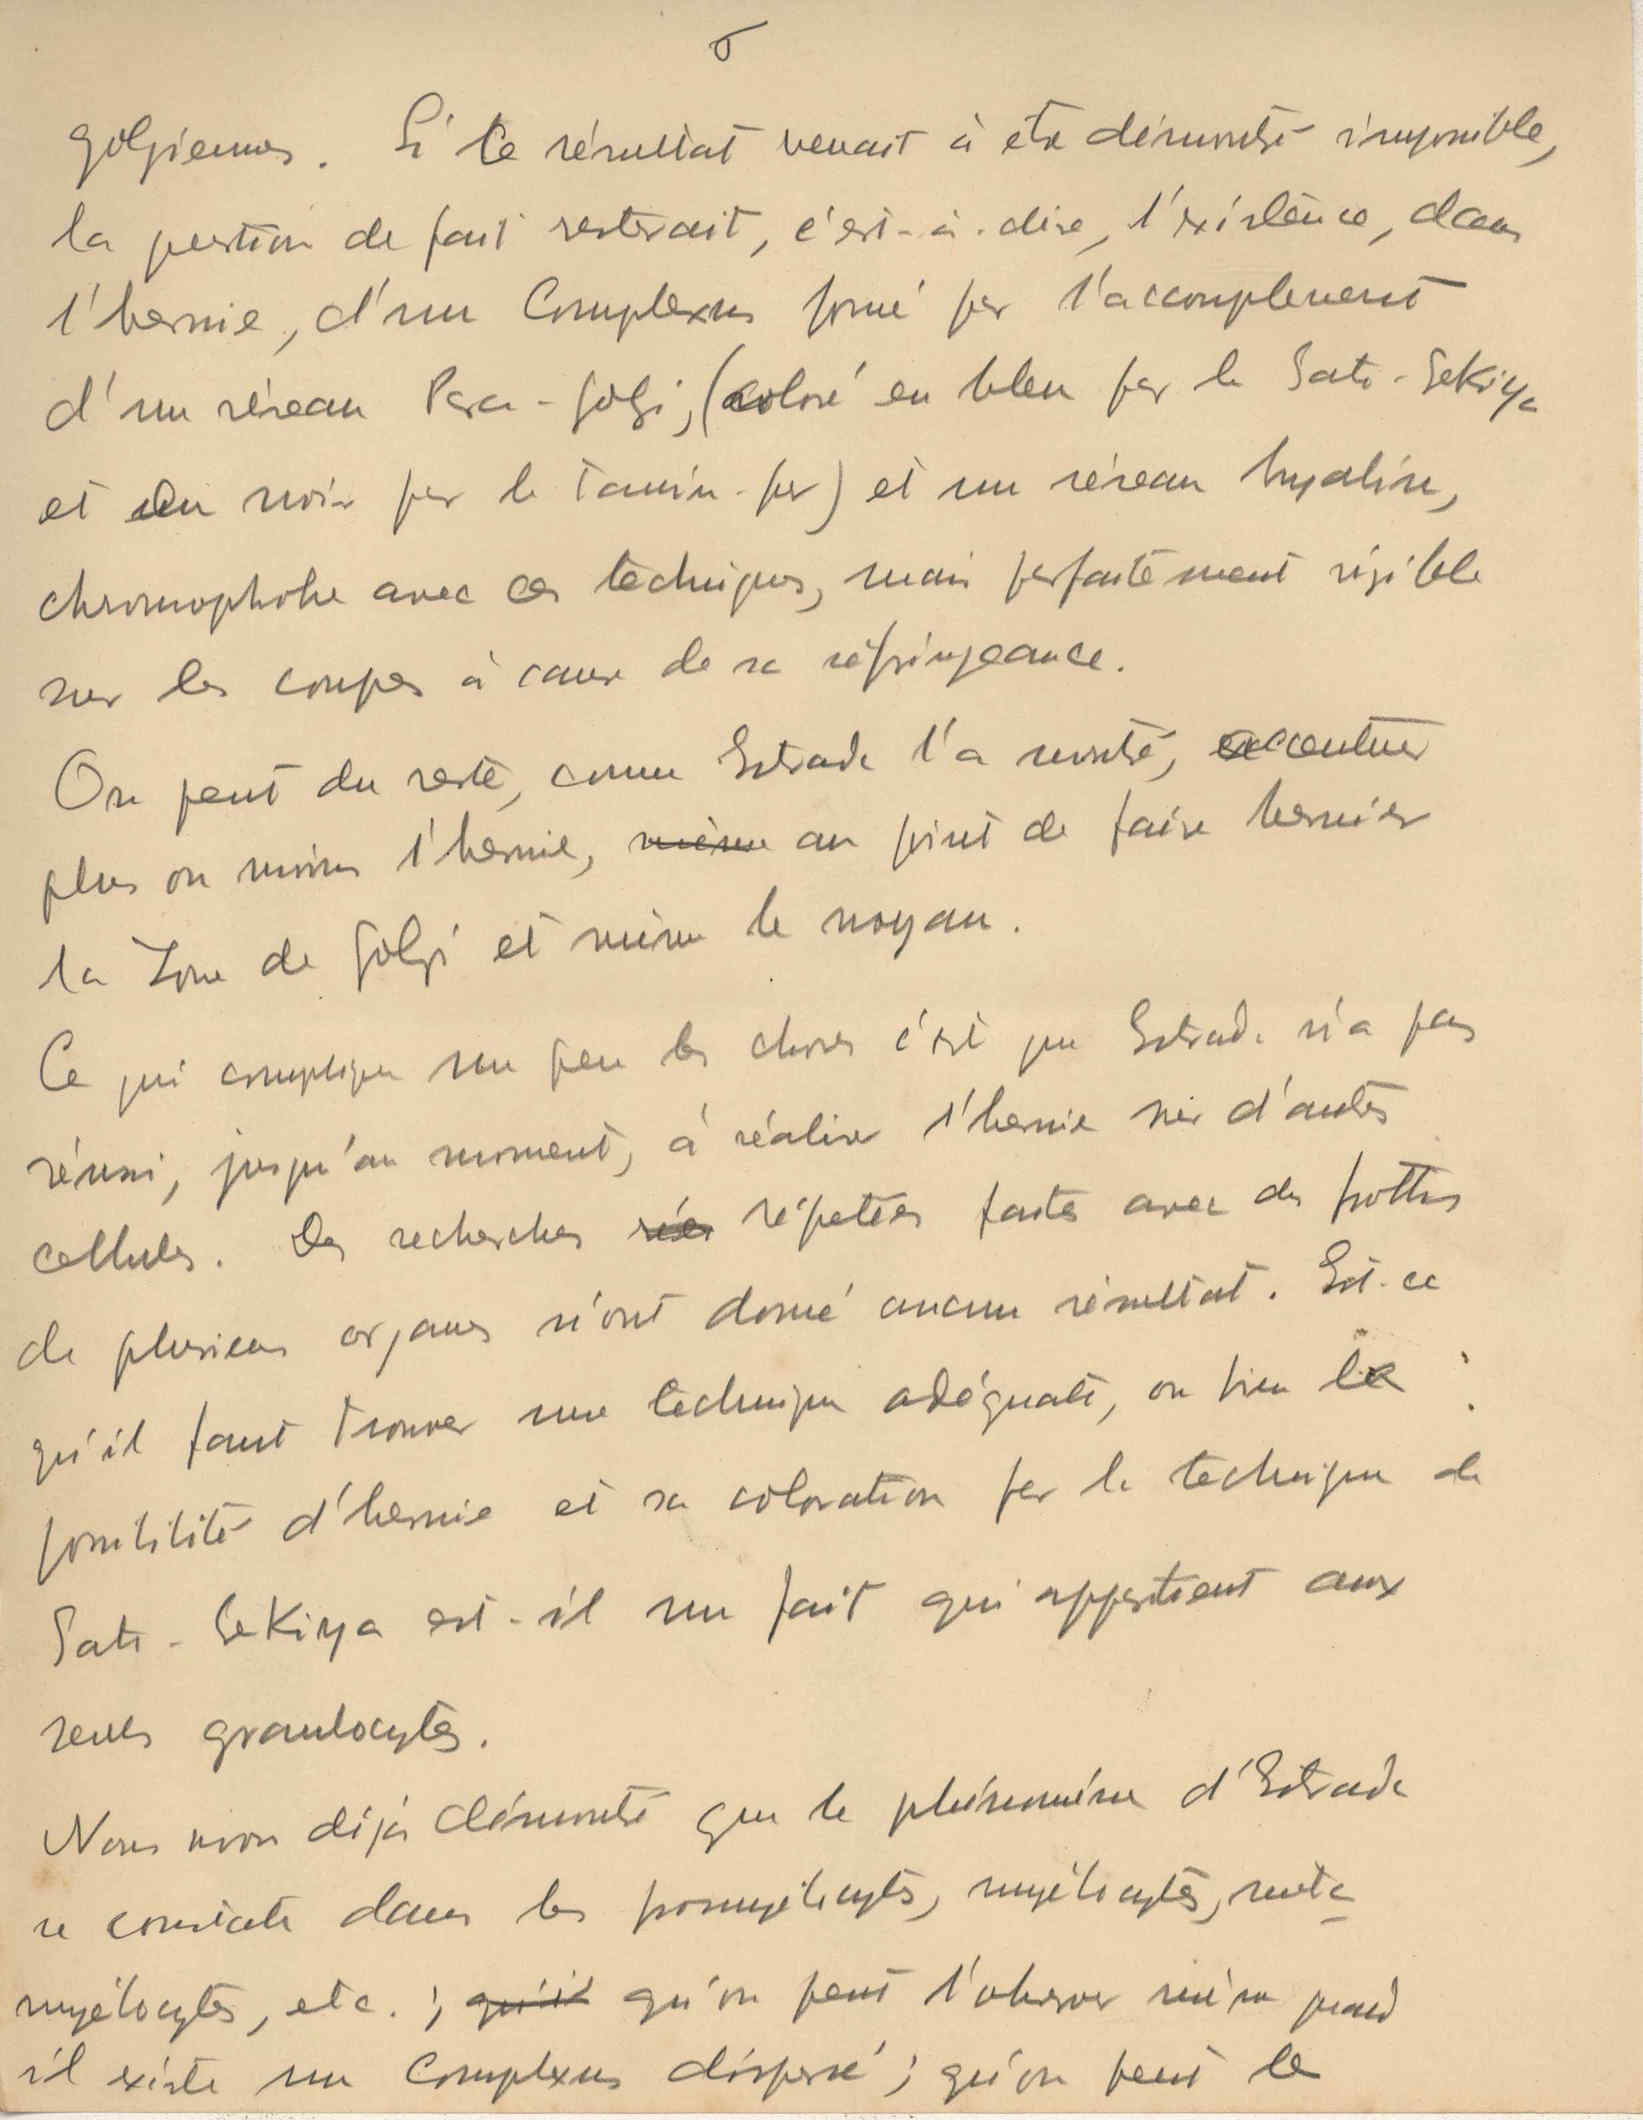 5
golgiennes. Si ce résultat venait à être démontré impossible,
la question de fait resterait, c'est-à-dire, l'existence, dans
l'hernie, d'un Complexus formé par l'accouplement
d'un réseau Para-Golgi, (coloré en bleu par le Sato-Sekiya
et en noir par le tannin-fer) et un réseau hyalin,
chromophobe avec ces techniques, mais parfaitement visible
sur les coupes à cause de sa réfringeance.
On peut du reste, comme Estrada l'a montré, accentuer
plus ou moins l'hernie, même au point de faire hernier
la Zone de Golgi et même le noyau.
Ce qui complique un peu les choses c'est que Estrada n'a pas
réussi, jusqu'au moment, à réaliser l'hernie sur d'autres
cellules. Des recherches répetées faites avec des frottis
de plusieurs organes n'ont donné aucun résultat. Est-ce
qu'il faut trouver une technique adéquate, ou bien la
possibilité d'hernie et sa coloration par la technique de
Sato-Sekiya est-il un fait qui appartient aux
seuls granulocytes.
Nous avons déjà démontré que le phénomène d'Estrada
se constate dans les promyélocytes, myélocytes, meta-
myélocytes, etc.; qu'il qu'on peut l'observer même quand
il existe un Complexus dispersé; qu'on peut le